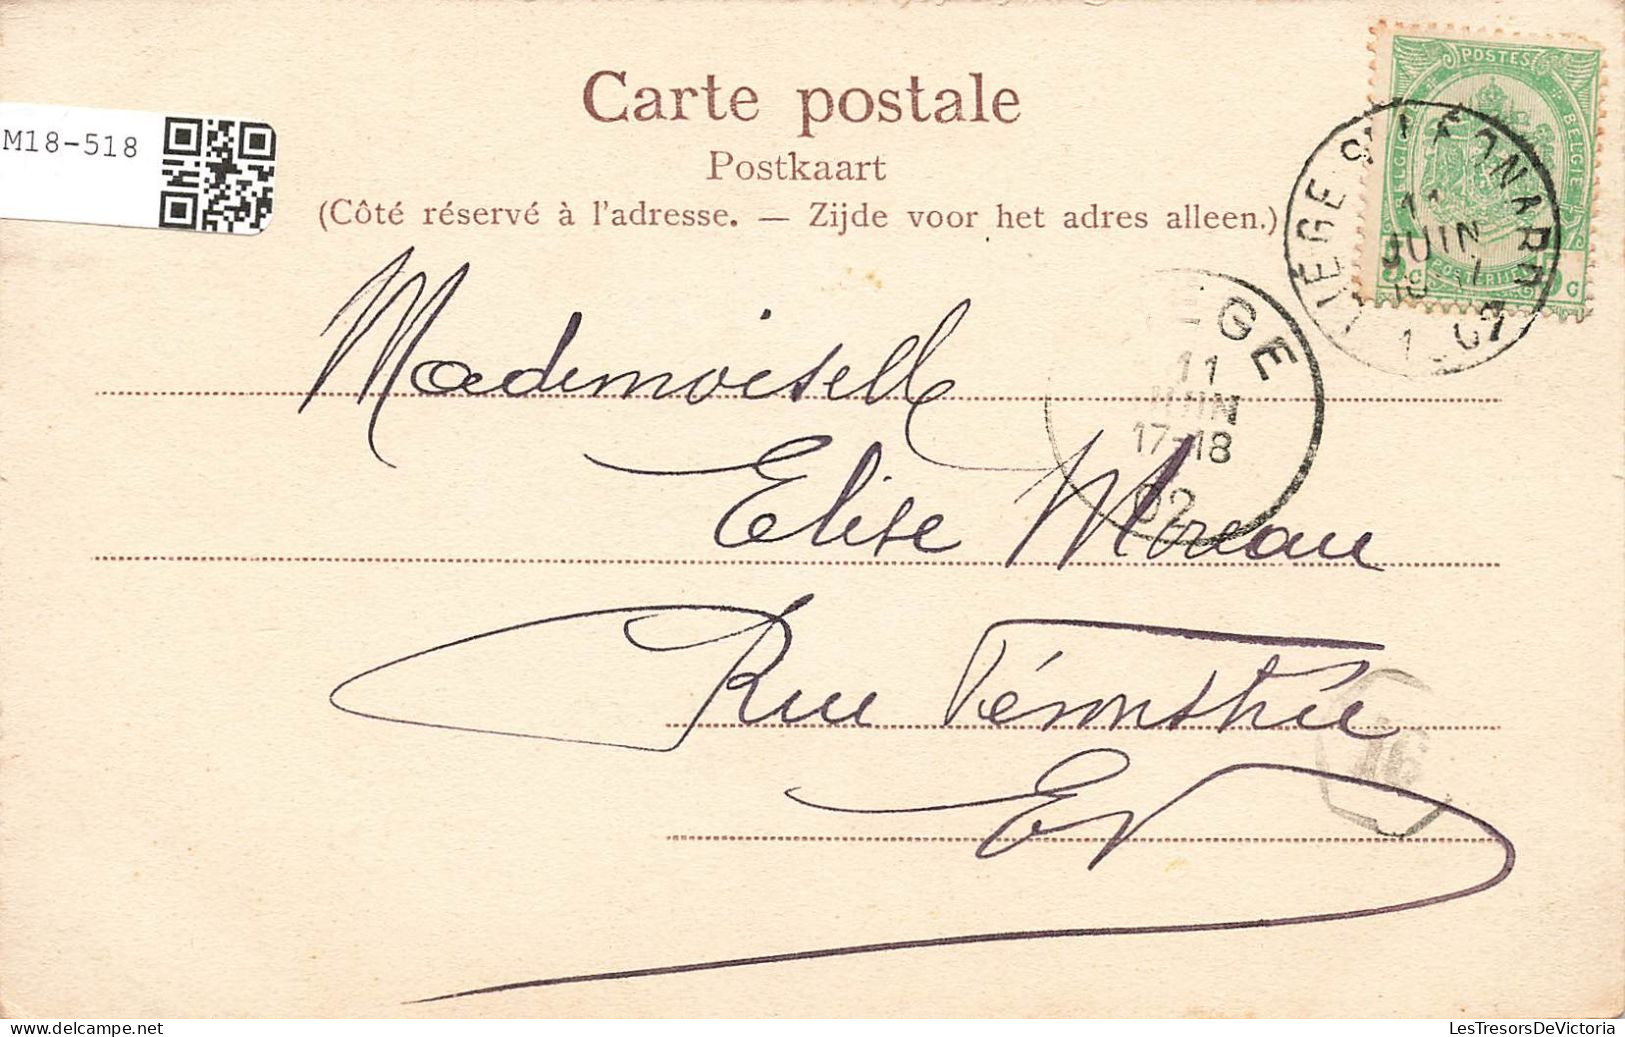 Carte postale
Postkaart
(Côté réservé à l'adresse. — Zijde voor het adres alleen.)
M18-518
POSTES
BELGIQUE BELGIE
POSTERIJEN
5c 5c
LIÈGE St LÉONARD
11
JUIN
LIEGE
11
JUIN
17-18
02
Mademoiselle
Elise Moreau
Rue Féronstrée
EV
16
LesTresorsDeVictoria
www.delcampe.net